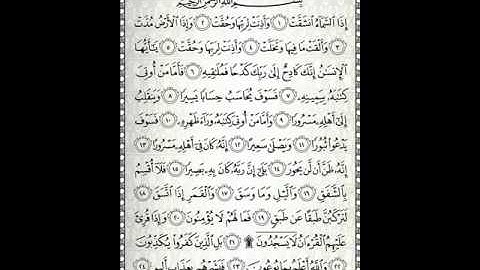 بِسْمِ اللَّهِ الرَّحْمَٰنِ الرَّحِيمِ
إِذَا السَّمَاءُ انشَقَّتْ ١ وَأَذِنَتْ لِرَبِّهَا وَحُقَّتْ ٢ وَإِذَا الْأَرْضُ مُدَّتْ
٣ وَأَلْقَتْ مَا فِيهَا وَتَخَلَّتْ ٤ وَأَذِنَتْ لِرَبِّهَا وَحُقَّتْ ٥ يَا أَيُّهَا
الْإِنسَانُ إِنَّكَ كَادِحٌ إِلَىٰ رَبِّكَ كَدْحًا فَمُلَاقِيهِ ٦ فَأَمَّا مَنْ أُوتِيَ
كِتَابَهُ بِيَمِينِهِ ٧ فَسَوْفَ يُحَاسَبُ حِسَابًا يَسِيرًا ٨ وَيَنقَلِبُ
إِلَىٰ أَهْلِهِ مَسْرُورًا ٩ وَأَمَّا مَنْ أُوتِيَ كِتَابَهُ وَرَاءَ ظَهْرِهِ ١٠ فَسَوْفَ
يَدْعُو ثُبُورًا ١١ وَيَصْلَىٰ سَعِيرًا ١٢ إِنَّهُ كَانَ فِي أَهْلِهِ مَسْرُورًا ١٣
إِنَّهُ ظَنَّ أَن لَّن يَحُورَ ١٤ بَلَىٰ إِنَّ رَبَّهُ كَانَ بِهِ بَصِيرًا ١٥ فَلَا أُقْسِمُ
بِالشَّفَقِ ١٦ وَاللَّيْلِ وَمَا وَسَقَ ١٧ وَالْقَمَرِ إِذَا اتَّسَقَ ١٨
لَتَرْكَبُنَّ طَبَقًا عَن طَبَقٍ ١٩ فَمَا لَهُمْ لَا يُؤْمِنُونَ ٢٠ وَإِذَا قُرِئَ
عَلَيْهِمُ الْقُرْآنُ لَا يَسْجُدُونَ ۩ ٢١ بَلِ الَّذِينَ كَفَرُوا يُكَذِّبُونَ
٢٢ وَاللَّهُ أَعْلَمُ بِمَا يُوعُونَ ٢٣ فَبَشِّرْهُم بِعَذَابٍ أَلِيمٍ ٢٤